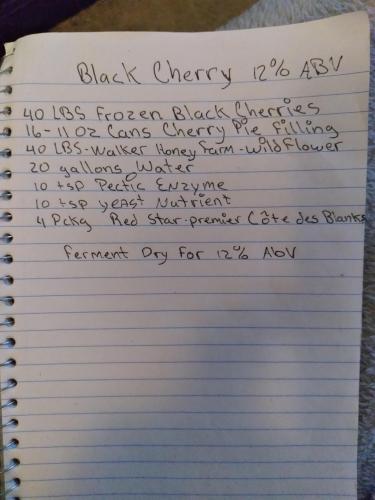 Black Cherry 12% ABV
40 LBS Frozen Black Cherries
16-11 oz Cans Cherry Pie Filling
40 LBS-Walker Honey Farm-Wildflower
20 gallons Water
10 tsp Pectic Enzyme
10 tsp yeast Nutrient
4 Pckg Red Star-premier Côte des Blanks
Ferment Dry For 12% AbV